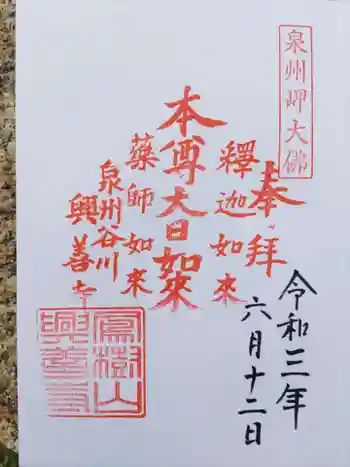 泉州岬大佛
奉拝
釋迦如來
本尊大日如來
藥師如來
泉州谷川
興善寺
令和三年
六月十二日
鳳樹山
興善寺